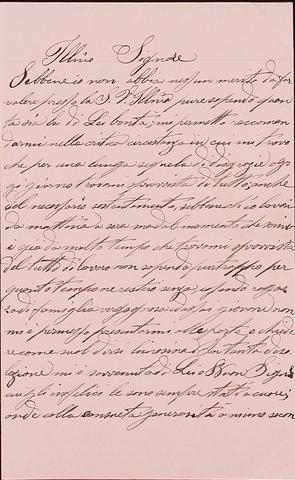 Illmo Signore
Sebbene io non abbia nessun merito da far
valere presso la S. V. Illma pure sapendo quan
ta sia la di Lei bontà, mi permetto raccoman
darmi nella critica circostanza in cui mi trovo
che per una lunga sequela di disgrazie og
gi giorno trovomi sprovvista di tutto, anche
del necessario sostentamento, sebbene chio lavori
da mattina a sera ma dal momento che
è già da molto tempo che trovomi sprovvista
del tutto di lavoro non sapendo purtroppo per
quanto tempo ne resterò senza, essendo ragaz
za di famiglia vergognosa ed assai giovane non
mi è permesso presentarmi alle porte a chiede
re come suol dirsi la
mi è sovvenuto di Lei o Buon Signore
cui gli infelici le sono sempre stati a cuore,
onde colla consueta generosità